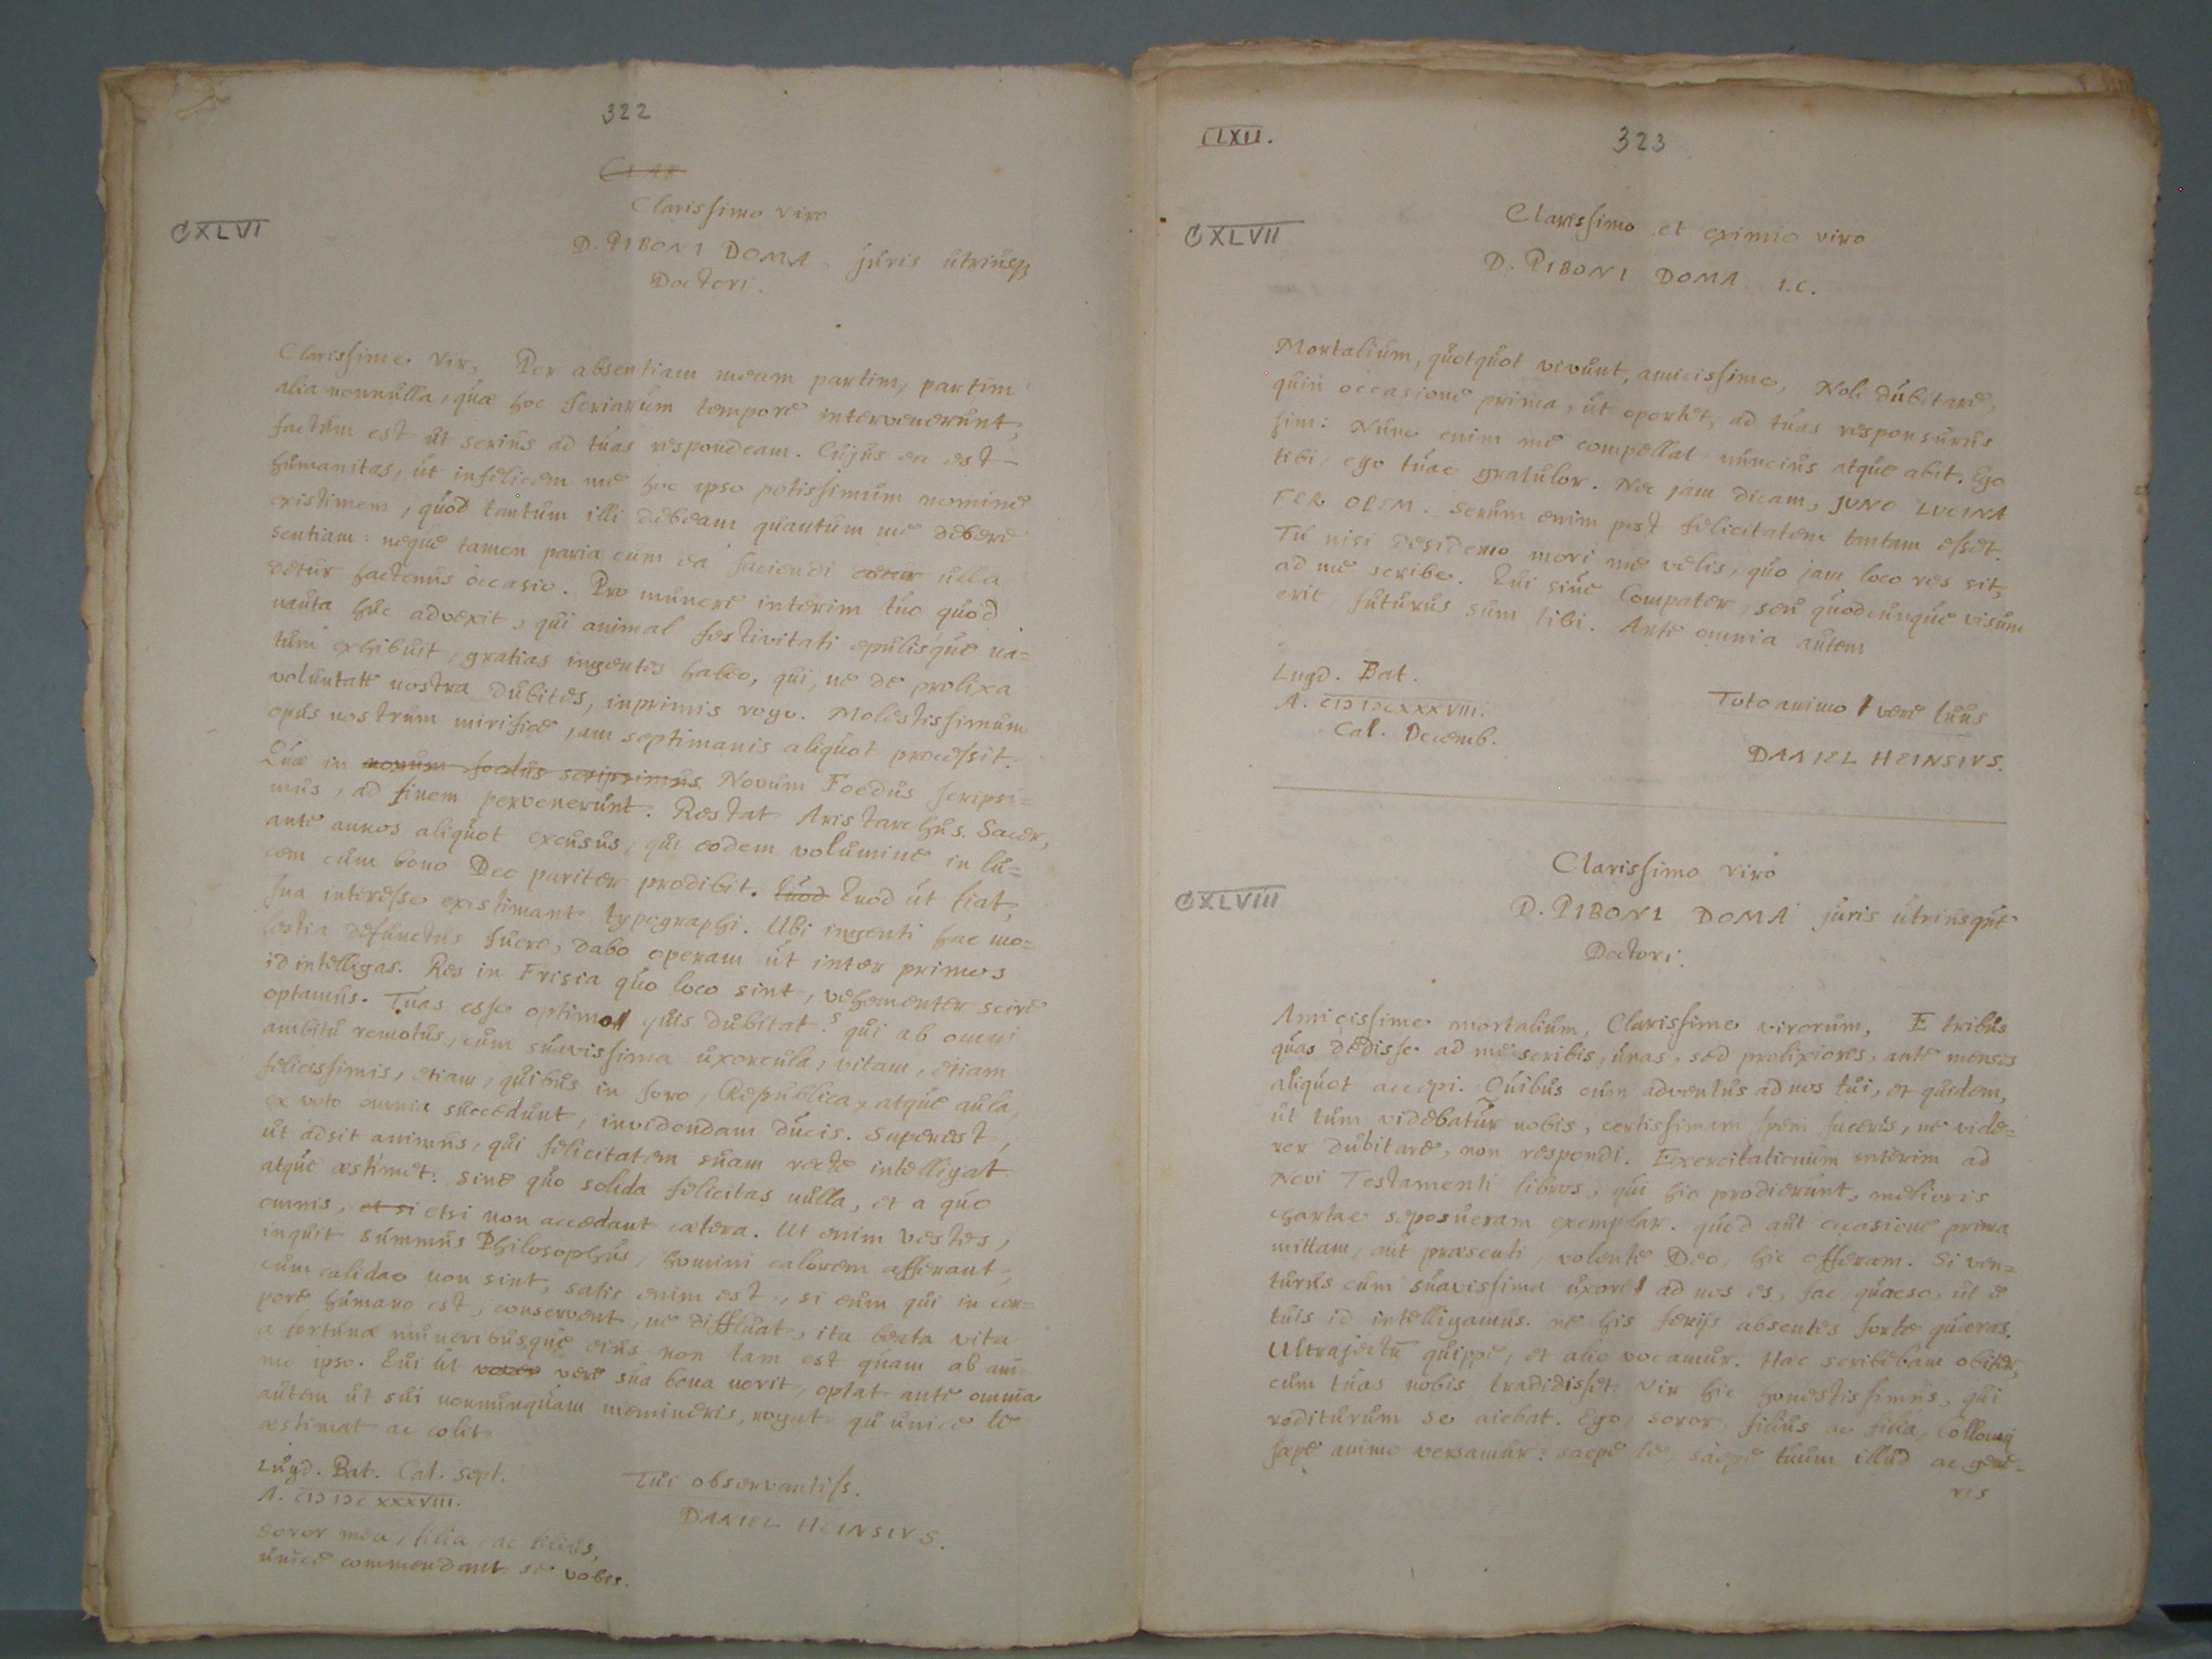 322
CXLVI
Clarissimo viro
D. PIBONI DOMA, juris utriusq3
Doctori.
Clarissime Vir, Per absentiam meam partim, partim
alia nonnulla, quæ hoc feriarum tempore intervenerunt,
factum est ut serius ad tuas respondeam. Cujus ea est
humanitas, ut infelicem me hoc ipso potissimum nomine
existimem, quod tantum illi debeam quantum me debere
sentiam: neque tamen paria cum ea faciendi ulla
detur hactenus occasio. Pro munere interim tuo quod
nauta huc advexit, qui animal festivitati epulisque na=
tum exhibuit, gratias ingentes habeo, qui, ne de prolixa
voluntate nostra dubites, inprimis rogo. Molestissimum
opus nostrum mirifice jam septimanis aliquot processit.
Quæ in novum foedus scripsimus Novum Foedus scripsi=
mus, ad finem pervenerunt. Restat Aristarchus Sacer,
ante annos aliquot excusus, qui eodem volumine in lu=
cem cum bono Deo pariter prodibit. Quod Quod ut fiat,
sua interesse existimant typographi. Ubi ingenti hac mo=
lestia defunctus fuero, dabo operam ut inter primos
id intelligas. Res in Frisia quo loco sint, vehementer scire
optamus. Tuas esse optimo quis dubitat? qui ab omni
ambitu remotus, cum suavissima uxorcula, vitam, etiam
felicissimis, etiam, quibus in foro, Republica, atque aula,
ex voto omnia succedunt, invidendam ducis. Superest,
ut adsit animus, qui felicitatem suam recte intelligat
atque æstimet. Sine quo solida felicitas nulla, et a quo
omnis, et si etsi non accedant cætera. Ut enim vestes,
inquit summus Philosophus, homini calorem afferant,
cum calidae non sint, satis enim est, si eum qui in cor=
pore humano est, conservent, ne diffluat, ita beata vita
a fortuna muneribusque eius non tam est quam ab ani
mo ipso. Qui ut vere sua bona norit, optat ante omnia
autem ut sui nonnunquam memineris, rogat qui unice te
æstimat ac colit
Lugd. Bat. Cal. Sept.
A. CIↃ IↃC XXXVIII.
Tui observantiss.
DANIEL HEINSIUS.
Soror mea, filia, ac filius,
unice commendant se vobis.
CLXII.
323
CXLVII
Clarissimo et eximio viro
D. PIBONI DOMA I.C.
Mortalium, quotquot vivunt, amicissime, Noli dubitare,
quin occasione prima, ut oportet, ad tuas responsurus
sim: Nunc enim me compellat nuncius atque abit. Ego
tibi, ego tuae gratulor. Nec jam dicam, JUNO LUCINA
FER OPEM. Serum enim post felicitatem tantam esset.
Tu nisi desiderio mori me velis, quo jam loco res sit,
ad me scribe. Qui sive Compater, seu quodcunque visum
erit, futurus sum tibi. Ante omnia autem
Lugd. Bat.
A. CIↃ IↃC XXXVIII.
Cal. Decemb.
Toto animo vere tuus
DANIEL HEINSIUS.
CXLVIII
Clarissimo viro
D. PIBONI DOMA juris utriusque
Doctori.
Amicissime mortalium, Clarissime virorum, E tribus
quas dedisse ad me scribis, unas, sed prolixiores, ante menses
aliquot accepi. Quibus cum adventus ad nos tui, et quidem,
ut tum videbatur nobis, certissimam spem faceres, ne vide=
rer dubitare, non respondi. Exercitationum interim ad
Novi Testamenti libros, qui hic prodierunt, melioris
chartae seposueram exemplar. quod aut occasione prima
mittam, aut præsenti, volente Deo, hic offeram. Si ven=
turus cum suavissima uxore ad nos es, fac quaeso, ut e
tuis id intelligamus. ne his ferijs absentes forte quæras.
Ultrajectū quippe, et alio vocamur. Hæc scribebam obiter,
cum tuas nobis tradidisset vir hic honestissimus, qui
rediturum se aiebat. Ego, soror, filius ac filia,
sæpe animo versamur: saepe te, saepe tuum illud ac gene=
ris